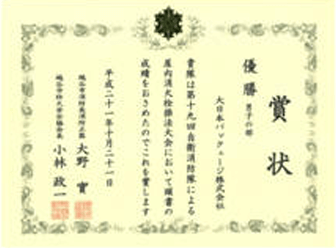 賞状
優勝 男子の部
大日本パッケージ株式会社
貴隊は第十九回自衛消防隊による
屋内消火栓操法大会において頭書の
成績をおさめたのでこれを賞します
平成二十一年十月二十一日
大野 實
小林 政一